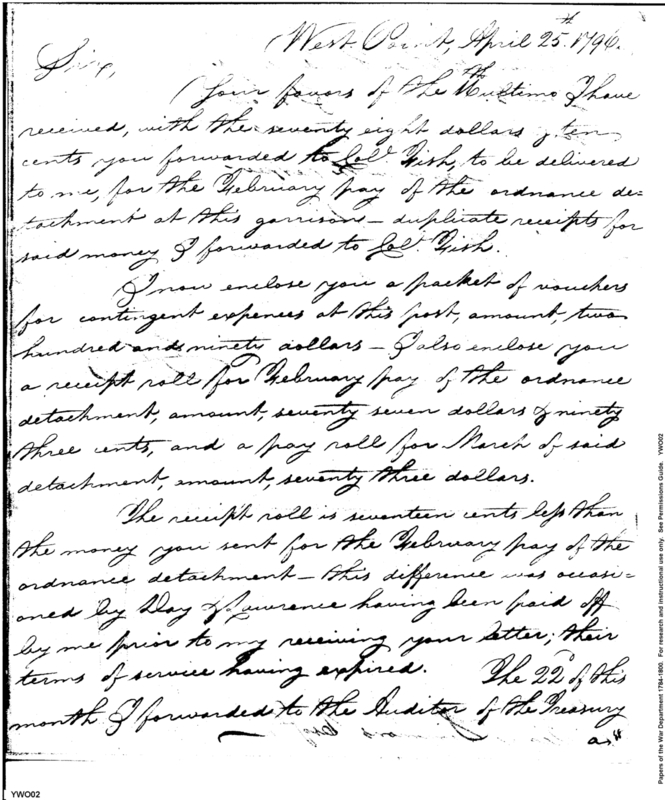 West Point, April 25th. 1796.
Sir,
Your favors of the ultimo I have
received, with the seventy eight dollars & ten
cents you forwarded to Col. Gish, to be delivered
to me, for the February pay of the ordnance de=
tachment at this garrison — duplicate receipts for
said money I forwarded to Col. Gish.
I now enclose you a packet of vouchers
for contingent expences at this post, amount, two
hundred and ninety dollars — I also enclose you
a receipt roll for February pay of the ordnance
detachment, amount, seventy seven dollars & ninety
three cents, and a pay roll for March of said
detachment, amount, seventy three dollars.
The receipt roll is seventeen cents less than
the money you sent for the February pay of the
ordnance detachment — this difference was occasi=
oned by Day & Lawrence having been paid off
by me prior to my receiving your letter; their
terms of service having expired. The 22d of this
month I forwarded to the Auditor of the Treasury
as
YWO02
Papers of the War Department 1784-1800. For research and instructional use only. See Permissions Guide. YWO02